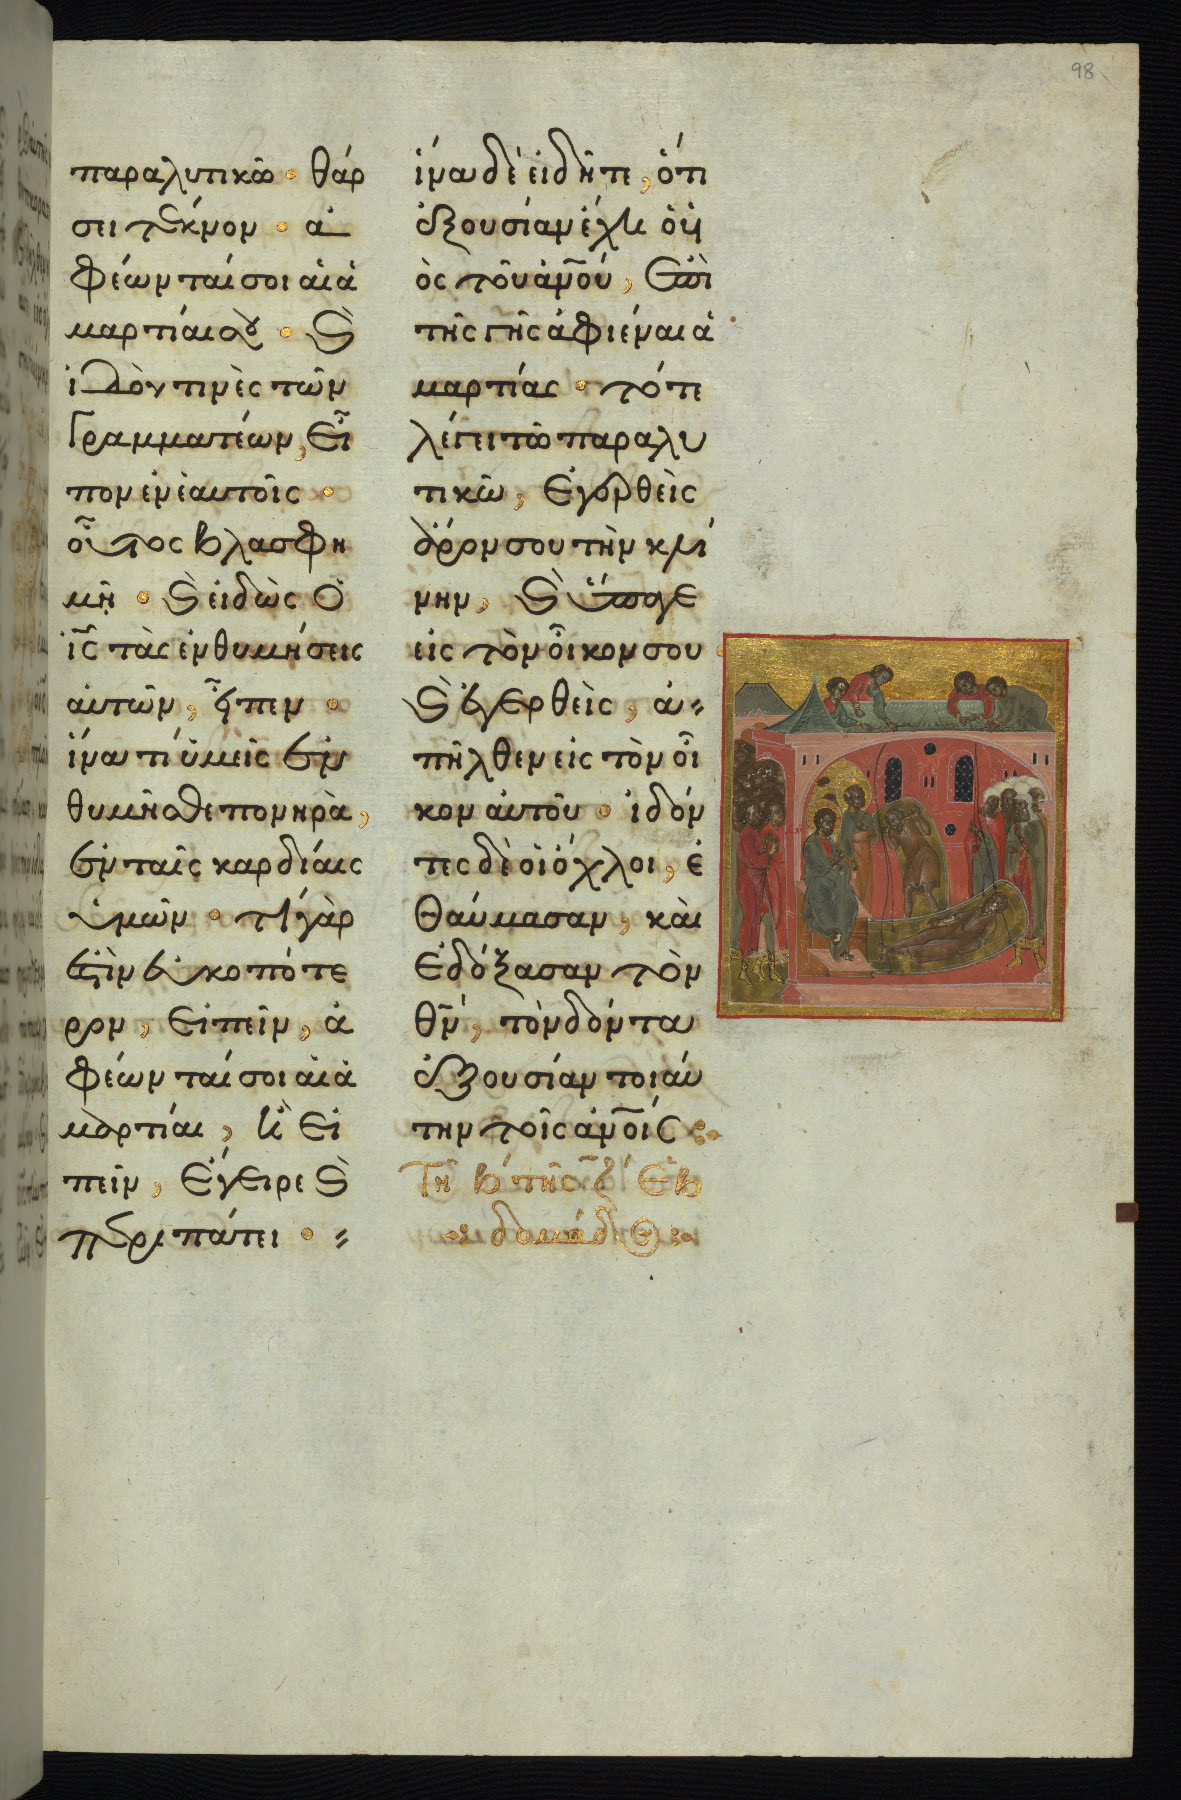 98
παραλυτικῶ · θάρ
σει τέκνον · ἀ
φέωνταί σοι αἱ ἁ
μαρτίαι σου · ϛ̀
ἰδού τινὲς τῶν
Γραμματέων, εἶ
πον ἐν ἑαυτοῖς ·
οὗτος βλασφη
μῆ · ϛ̀ εἰδὼς ὁ
ἰς̅ τὰς ἐνθυμήσεις
αὐτῶν, εἶπεν ·
ἵνα τί ὑμεῖς ἐν
θυμῆσθε πονηρὰ,
ἐν ταῖς καρδίαις
ὑμῶν · τί γὰρ
ἐστὶν εὐκοπότε
ρον, εἰπεῖν, ἀ
φέωνταί σοι αἱ ἁ
μαρτίαι, ἢ εἰ
πεῖν, ἔγειρε ϛ̀
περιπάτει ·
ἵνα δὲ εἰδῆτε, ὅτι
ἐξουσίαν ἔχει ὁ υἱ
ὸς τοῦ ἀν̅ου, ἐπὶ
τῆς γῆς ἀφιέναι ἁ
μαρτίας · τότε
λέγει τῶ παραλυ
τικῶ, ἐγερθεὶς
ἆρόν σου τὴν κλί
νην, ϛ̀ ὕπαγε
εἰς τὸν οἶκον σου
ϛ̀ ἐγερθεὶς, ἀ
πῆλθεν εἰς τὸν οἶ
κον αὐτοῦ · ἰδόν
τες δὲ οἱ ὄχλοι, ἐ
θαύμασαν, καὶ
ἐδόξασαν τὸν
θν̅, τὸν δόντα
ἐξουσίαν τοιαύ
την τοῖς ἀν̅οις
Τῆ β τῆς ζ ἑβ
δομάδος